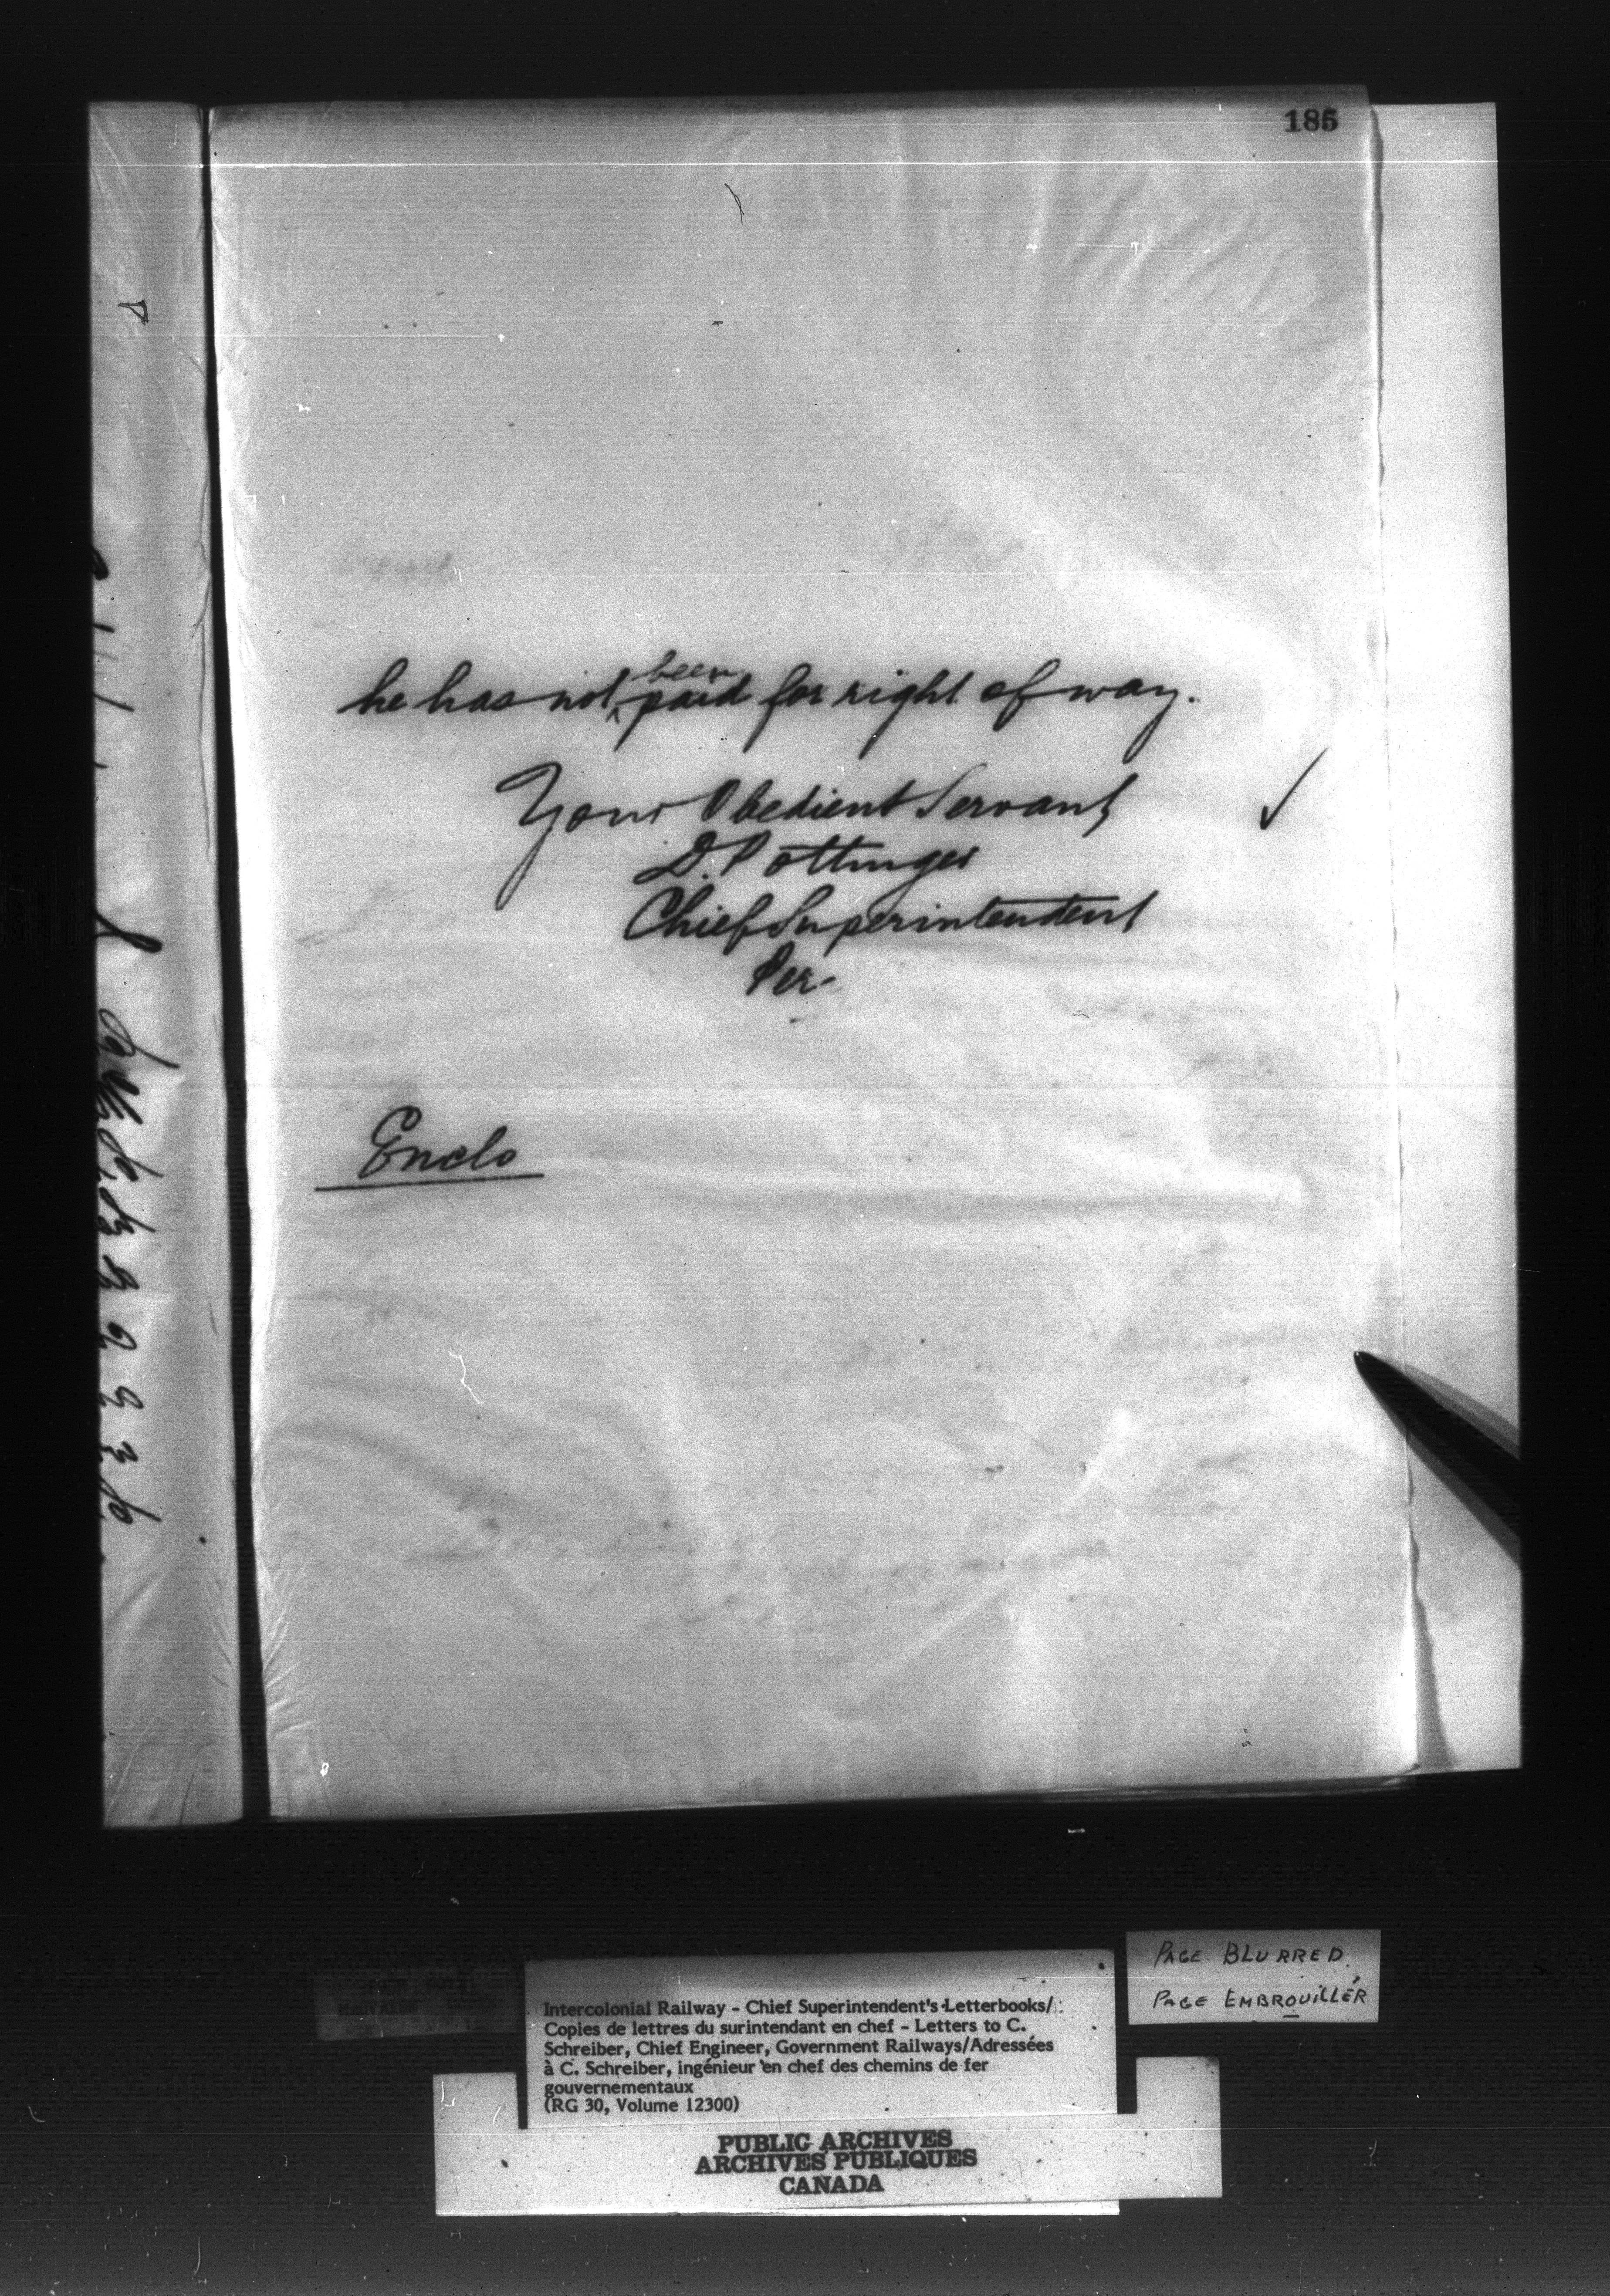 185
he has not ^been paid for right of way.
Your Obedient Servant
D. Pottinger
Chief Superintendent
Per
Enclo
PAGE BLURRED.
PAGE EMBROUILLÉR
MAUVAISE COPIE
Intercolonial Railway - Chief Superintendent's Letterbooks/
Copies de lettres du surintendant en chef - Letters to C.
Schreiber, Chief Engineer, Government Railways/Adressées
à C. Schreiber, ingénieur en chef des chemins de fer
gouvernementaux
(RG 30, Volume 12300)
PUBLIC ARCHIVES
ARCHIVES PUBLIQUES
CANADA